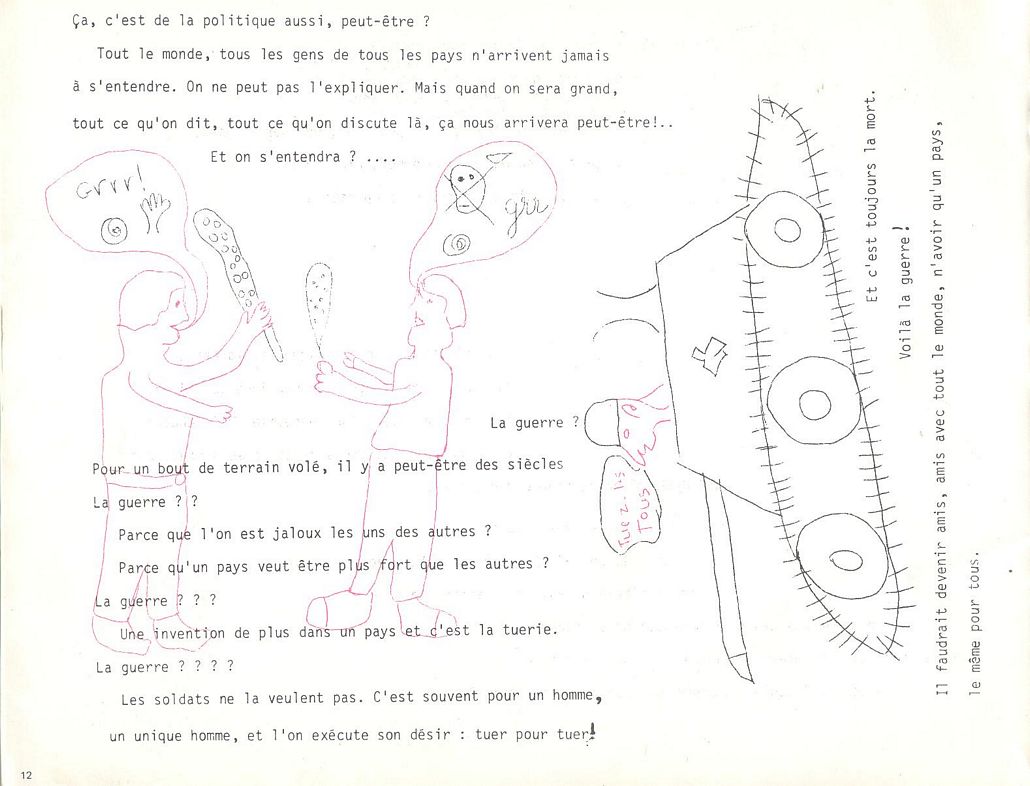 Ça, c'est de la politique aussi, peut-être ?
Tout le monde, tous les gens de tous les pays n'arrivent jamais
à s'entendre. On ne peut pas l'expliquer. Mais quand on sera grand,
tout ce qu'on dit, tout ce qu'on discute là, ça nous arrivera peut-être!..
Et on s'entendra ? ....
Grrr!
grr
La guerre ?
Pour un bout de terrain volé, il y a peut-être des siècles
La guerre ? ?
Parce que l'on est jaloux les uns des autres ?
Parce qu'un pays veut être plus fort que les autres ?
La guerre ? ? ?
Une invention de plus dans un pays et c'est la tuerie.
La guerre ? ? ? ?
Les soldats ne la veulent pas. C'est souvent pour un homme,
un unique homme, et l'on exécute son désir : tuer pour tuer!
Tuez-les
Tous
Et c'est toujours la mort.
Voilà la guerre!
Il faudrait devenir amis, amis avec tout le monde, n'avoir qu'un pays,
le même pour tous.
12